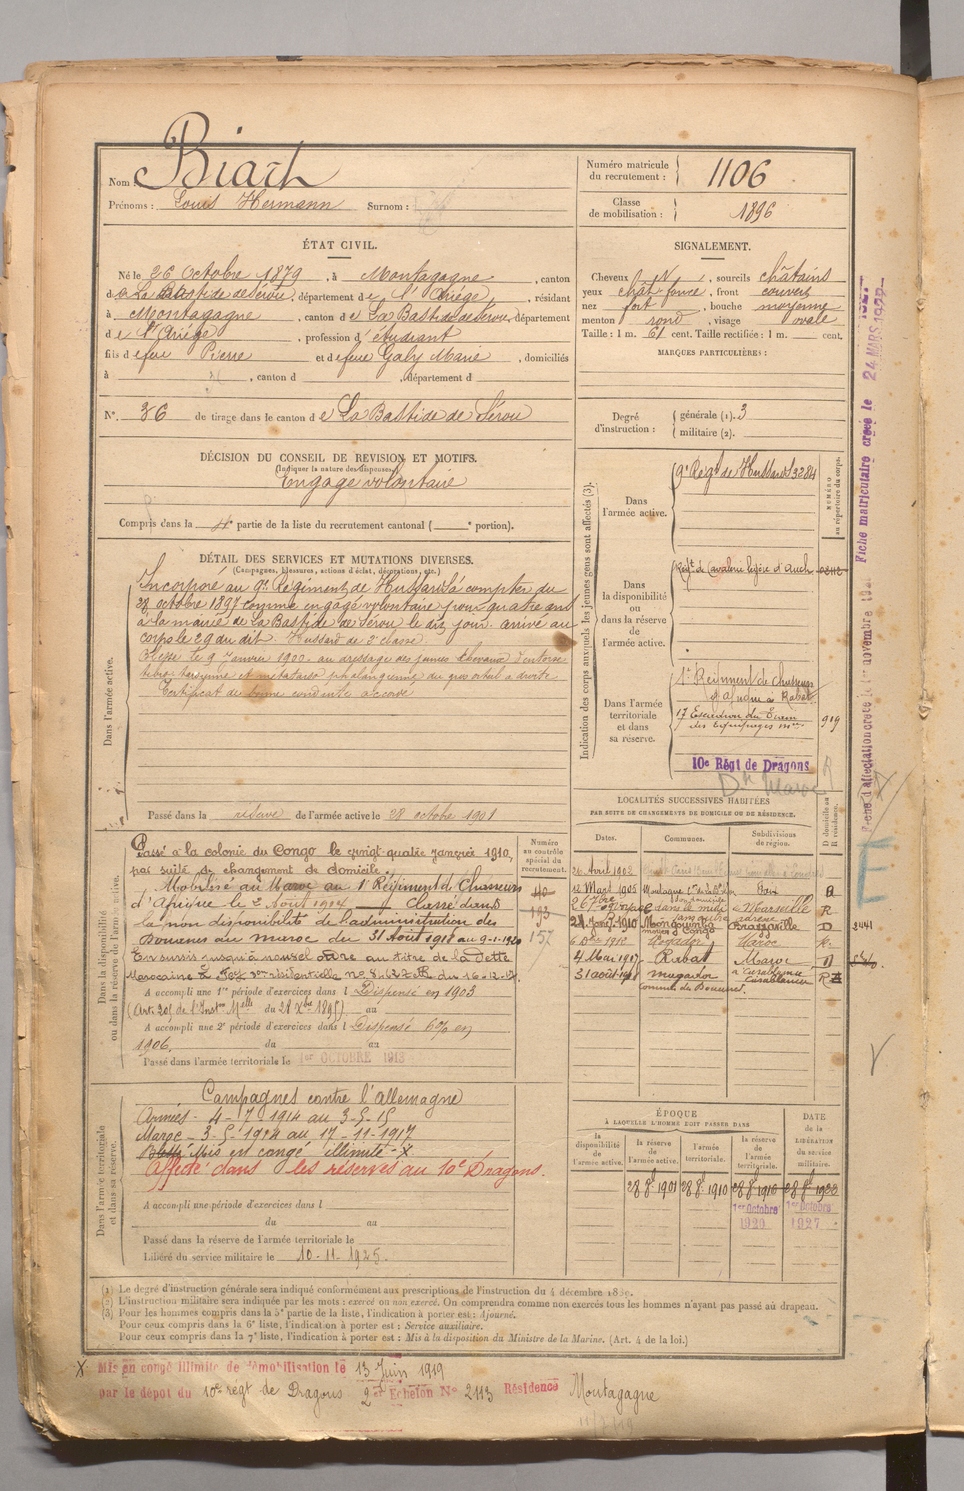 Nom : Biart
Prénoms : Louis Hermann Surnom :
Numéro matricule du recrutement : 1106
Classe de mobilisation : 1896
ÉTAT CIVIL.
Né le 26 Octobre 1879, à Montagagne, canton
de La Bastide de Sérou, département de l'Ariège, résidant
à Montagagne, canton de La Bastide de Sérou, département
de l'Ariège, profession d'étudiant
fils de feu Pierre et de feue Galy Marie, domiciliés
à , canton d , département d
N°. 36 de tirage dans le canton de La Bastide de Sérou
SIGNALEMENT.
Cheveux N, sourcils châtains
yeux chât foncé, front couvert
nez fort, bouche moyenne
menton rond, visage ovale
Taille : 1 m. 61 cent. Taille rectifiée : 1 m. cent.
MARQUES PARTICULIÈRES :
Degré d'instruction : générale (1). 3
militaire (2).
DÉCISION DU CONSEIL DE REVISION ET MOTIFS.
(Indiquer la nature des dispenses)
Engagé volontaire
Compris dans la 4e partie de la liste du recrutement cantonal ( e portion).
DÉTAIL DES SERVICES ET MUTATIONS DIVERSES.
(Campagnes, blessures, actions d'éclat, décorations, etc.)
Dans l'armée active.
Incorporé au 9e Régiment de Hussards à compter du
28 octobre 1897 comme engagé volontaire pour quatre ans
à la mairie de La Bastide de Sérou le dit jour. arrivé au
corps le 29 du dit. Hussard de 2e classe.
Blessé le 9 Janvier 1900 au dressage des jeunes chevaux d'entorse
tibio tarsienne et metatarso phalangienne du gros orteil à droite
Certificat de bonne conduite accordé
Passé dans la réserve de l'armée active le 28 octobre 1901
Indication des corps auxquels les jeunes gens sont affectés (3).
NUMÉRO au répertoire du corps.
Dans l'armée active.
9e Régt de Hussards 3284
Dans la disponibilité ou dans la réserve de l'armée active.
Régt de Cavalerie légère d'Auch
Dans l'armée territoriale et dans sa réserve.
1er Régiment de Chasseurs
d'Afrique à Rabat
17 Escadron du Train
des Equipages Mres 919
10e Régt de Dragons
Dn Maroc R
Dans la disponibilité ou dans la réserve de l'armée active.
Passé à la colonie du Congo le vingt-quatre janvier 1910,
par suite de changement de domicile.
Mobilisé au Maroc au 1er Régiment de Chasseurs
d'Afrique le 2 Août 1914 Classé dans
la non disponibilité de l'administration des
Douanes au maroc du 31 Août 1918 au 9-1-1920
En sursis jusqu'à nouvel ordre au titre de la Dette
Marocaine
A accompli une 1re période d'exercices dans l Dispensé en 1903
A accompli une 2e période d'exercices dans l Dispensé 6% en
1906. du au
Passé dans l'armée territoriale le 1er OCTOBRE 1913
Numéro au contrôle spécial du recrutement.
193
157
LOCALITÉS SUCCESSIVES HABITÉES
PAR SUITE DE CHANGEMENTS DE DOMICILE OU DE RÉSIDENCE.
Dates. Communes. Subdivisions de région. D domicile ou R résidence.
20 Avril 1902
12 Mars 1905 Montagagne Foix D
Marseille R
24 Janv. 1910 Brazzaville D
6 Dbre 1912 Mogador Maroc R
4 Mai 1917 Rabat Maroc D
31 août 1918 mogador Casablanca R
Dans l'armée territoriale et dans sa réserve.
Campagnes contre l'allemagne
Armées - 4-7-1914 au 3-5-15
Maroc - 3-5-1914 au 17-11-1917
Mis en congé illimité - X
Affecté dans les réserves au 10e Dragons.
A accompli une période d'exercices dans l
du au
Passé dans la réserve de l'armée territoriale le
Libéré du service militaire le 10-11-1925.
ÉPOQUE
À LAQUELLE L'HOMME DOIT PASSER DANS
la disponibilité de l'armée active. la réserve de l'armée active. l'armée territoriale. la réserve de l'armée territoriale.
DATE de la LIBÉRATION du service militaire.
28 8bre 1901 28 8bre 1910 28 8bre 1916
1er Octobre 1920 1er Octobre 1927
(1) Le degré d'instruction générale sera indiqué conformément aux prescriptions de l'instruction du 4 décembre 1889.
(2) L'instruction militaire sera indiquée par les mots : exercé ou non exercé. On comprendra comme non exercés tous les hommes n'ayant pas passé au drapeau.
(3) Pour les hommes compris dans la 5e partie de la liste, l'indication à porter est : Ajourné.
Pour ceux compris dans la 6e liste, l'indication à porter est : Service auxiliaire.
Pour ceux compris dans la 7e liste, l'indication à porter est : Mis à la disposition du Ministre de la Marine. (Art. 4 de la loi.)
X Mis en congé illimité de démobilisation le 13 Juin 1919
par le dépôt du 10e régt de Dragons 2e Echelon N° 2113 Résidence Montagagne
Fiche matriculaire créée le 24 MARS 1922